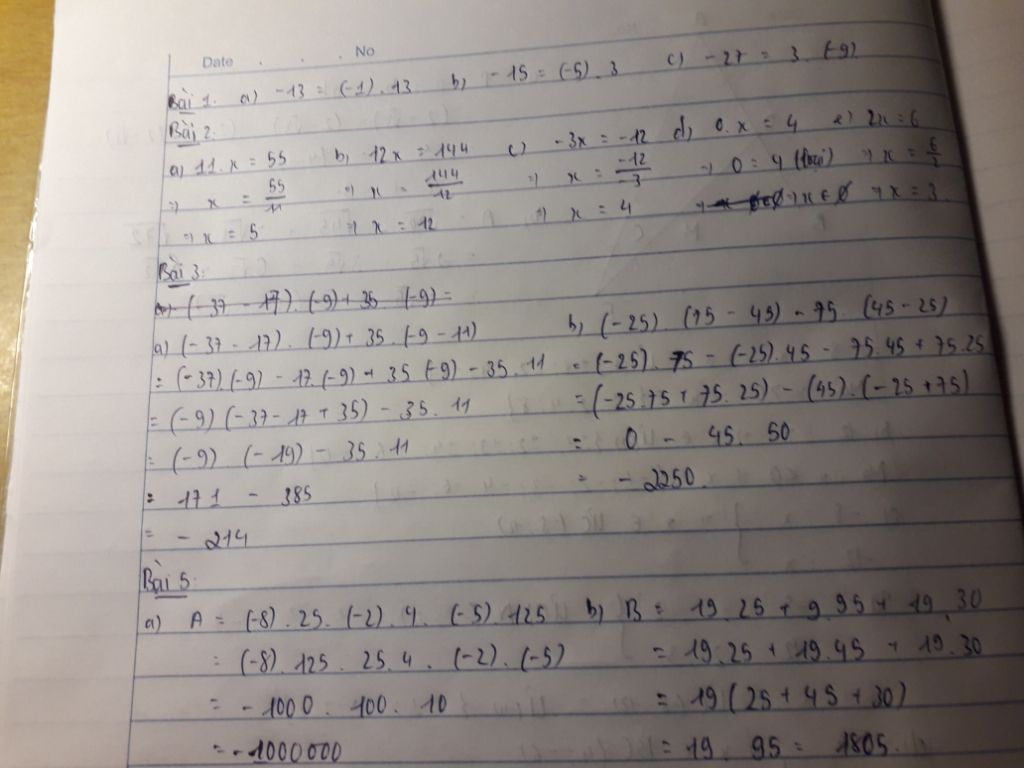 Date . . . No
Bài 1. a) -13 = (-1). 13 b) -15 = (-5). 3 c) -27 = 3. (-9)
Bài 2:
a) 11. x = 55 b) 12x = 144 c) -3x = -12 d) 0. x = 4 e) 2x = 6
=> x = 55/11 => x = 144/12 => x = -12/-3 => 0 = 4 (loại) => x = 6/2
=> x = 5 => x = 12 => x = 4 => x ∈ ∅ => x = 3
Bài 3:
a) (-37 - 17). (-9) + 35 (-9) =
a) (-37 - 17). (-9) + 35. (-9 - 11) b) (-25). (75 - 45) - 75. (45 - 25)
= (-37)(-9) - 17.(-9) + 35 (-9) - 35. 11 = (-25). 75 - (-25). 45 - 75.45 + 75.25
= (-9) (-37 - 17 + 35) - 35. 11 = (-25.75 + 75. 25) - (45). (-25 + 75)
= (-9) (-19) - 35. 11 = 0 - 45. 50
= 171 - 385 = - 2250.
= - 214
Bài 5:
a) A = (-8). 25. (-2). 4. (-5) 125 b) B = 19. 25 + 9. 95 + 19. 30
= (-8). 125. 25. 4. (-2). (-5) = 19.25 + 19.45 + 19. 30
= - 1000. 100. 10 = 19 (25 + 45 + 30)
= - 1000000 = 19. 95 = 1805.